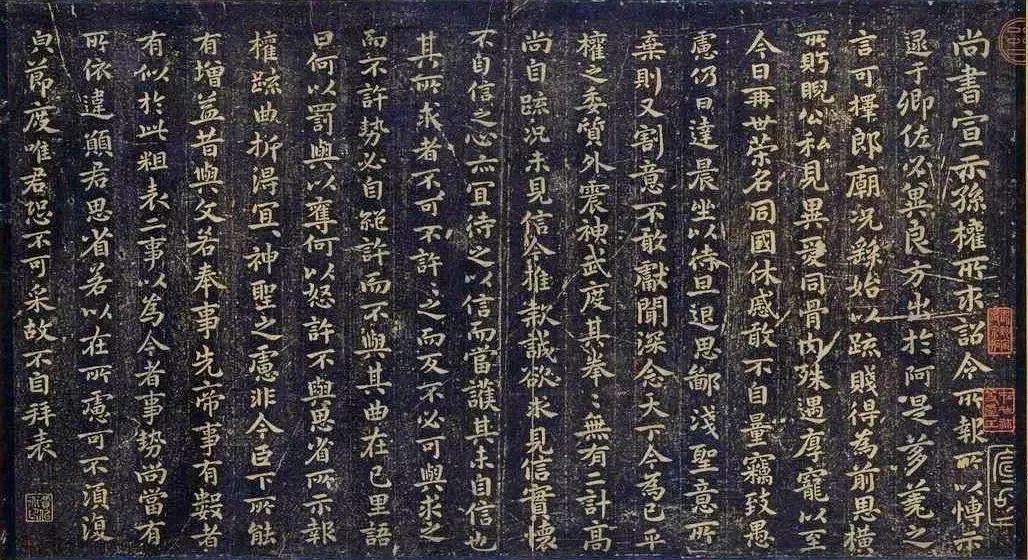 尚書宣示孫權所求詔令所報所以博示
逮于卿佐必冀良方出於阿是芻蕘之
言可擇郎廟況繇始以疏賤得為前恩橫
所眄睨公私見異愛同骨肉殊遇厚寵以至
今日再世榮名同國休慼敢不自量竊致愚
慮仍日達晨坐以待旦退思鄙淺聖意所
棄則又割意不敢獻聞深念天下今為已平
權之委質外震神武度其拳々無有二計高
尚自疏況未見信今推款誠欲求見信實懷
不自信之心亦宜待之以信而當護其未自信也
其所求者不可不許許之而反不必可與求之
而不許勢必自絕許而不與其曲在己里語
曰何以罰與以奪何以怒許不與思省所示報
權疏曲折得宜宜神聖之慮非今臣下所能
有增益昔與文若奉事先帝事有數者
有似於此粗表二事以為今者事勢尚當有
所依違願君思省若以在所慮可不須復
貞節度唯君恐不可采故不自拜表